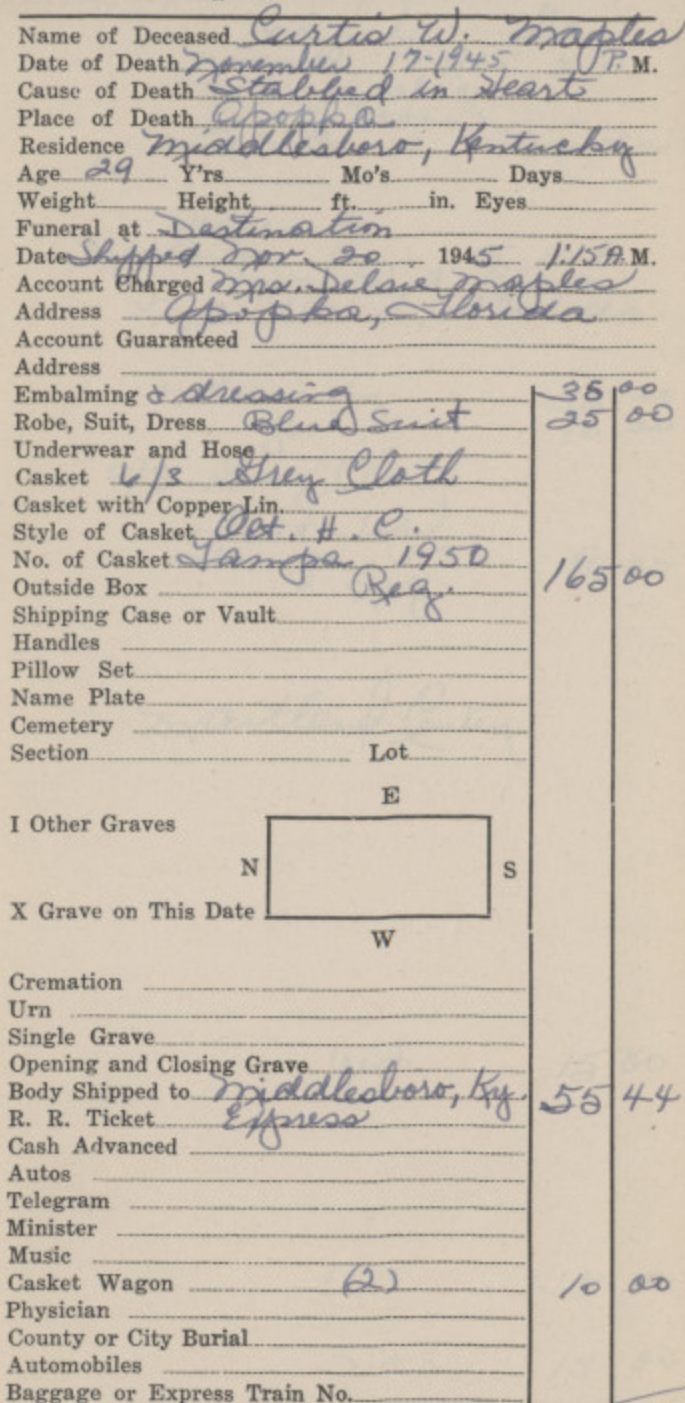 Name of Deceased Curtis W. Maples
Date of Death November 17-1945 P. M.
Cause of Death Stabbed in Heart
Place of Death Apopka
Residence Middlesboro, Kentucky
Age 29 Y'rs. Mo's. Days
Weight Height ft. in. Eyes
Funeral at Destination
Date Shipped Nov. 20 1945 1:15 A. M.
Account Charged Mrs. Delsie Maples
Address Apopka, Florida
Account Guaranteed
Address
Embalming & dressing 35 00
Robe, Suit, Dress Blue Suit 25 00
Underwear and Hose
Casket 6/3 Grey Cloth
Casket with Copper Lin.
Style of Casket Oct. H. C.
No. of Casket Tampa 1950
Outside Box Reg. 165 00
Shipping Case or Vault
Handles
Pillow Set
Name Plate
Cemetery
Section Lot
E
I Other Graves
N S
X Grave on This Date
W
Cremation
Urn
Single Grave
Opening and Closing Grave
Body Shipped to Middlesboro, Ky. 55 44
R. R. Ticket Express
Cash Advanced
Autos
Telegram
Minister
Music
Casket Wagon (2) 10 00
Physician
County or City Burial
Automobiles
Baggage or Express Train No.